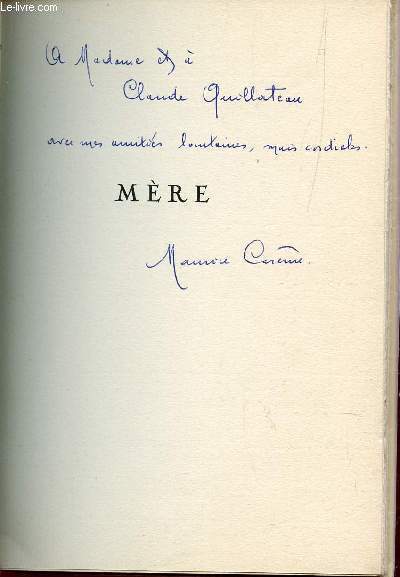 Le-livre.com
A Madame et à
Claude Quillateau
avec mes amitiés lointaines, mais cordiales.
MÈRE
Maurice Carême.